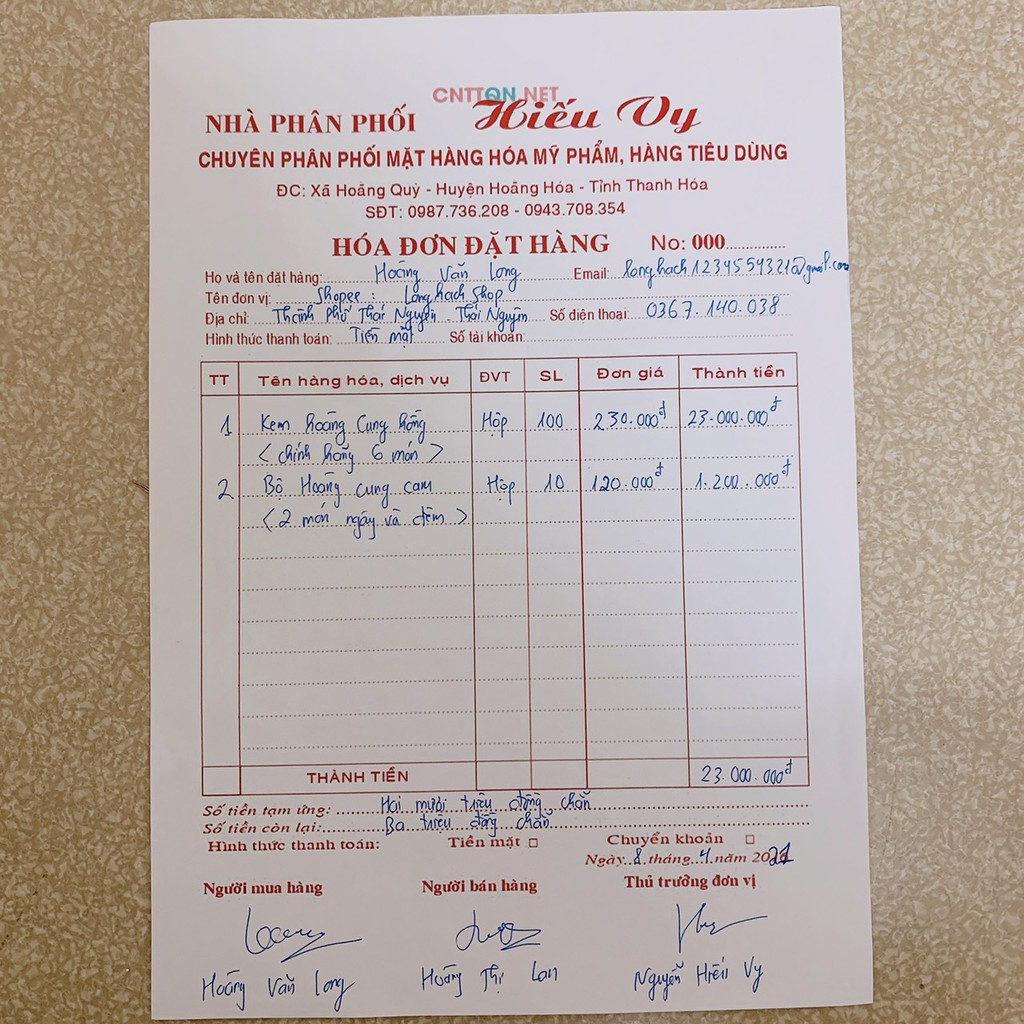 CNTTQN.NET
NHÀ PHÂN PHỐI Hiếu Vy
CHUYÊN PHÂN PHỐI MẶT HÀNG HÓA MỸ PHẨM, HÀNG TIÊU DÙNG
ĐC: Xã Hoằng Quỳ - Huyện Hoằng Hóa - Tỉnh Thanh Hóa
SĐT: 0987.736.208 - 0943.708.354
HÓA ĐƠN ĐẶT HÀNG No: 000
Họ và tên đặt hàng: Hoàng Văn Long Email: longhach1234559321@gmail.com
Tên đơn vị: Shopee: Longhach Shop
Địa chỉ: Thành Phố Thái Nguyên - Thái Nguyên Số điện thoại: 0367.140.038
Hình thức thanh toán: Tiền mặt Số tài khoản:
TT Tên hàng hóa, dịch vụ ĐVT SL Đơn giá Thành tiền
1 Kem hoàng Cung hồng Hộp 100 230.000đ 23.000.000đ
< chính hãng 6 món >
2 Bộ Hoàng cung cam Hộp 10 120.000đ 1.200.000đ
< 2 món ngày và đêm >
THÀNH TIỀN 23.000.000đ
Số tiền tạm ứng: Hai mươi triệu đồng chẵn
Số tiền còn lại: Ba triệu đồng chẵn
Hình thức thanh toán: Tiền mặt □ Chuyển khoản □
Ngày 8 tháng 4 năm 2021
Người mua hàng Người bán hàng Thủ trưởng đơn vị
Hoàng Văn Long Hoàng Thị Lan Nguyễn Hiếu Vy